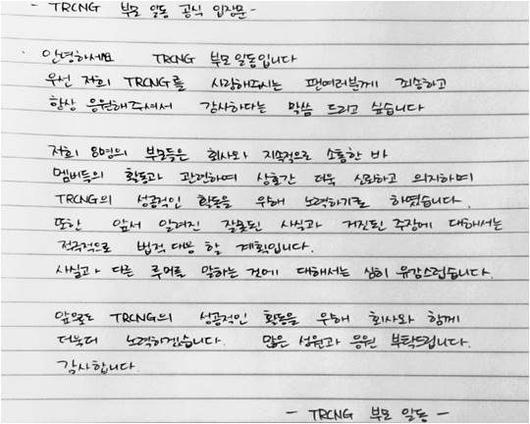 - TRCNG 부모 일동 공식 입장문 -
안녕하세요 TRCNG 부모 일동입니다
우선 저희 TRCNG를 사랑해주시는 팬여러분께 죄송하고
항상 응원해주셔서 감사하다는 말씀 드리고 싶습니다
저희 8명의 부모들은 회사와 지속적으로 소통한 바
멤버들의 활동과 관련하여 상호간 더욱 신뢰하고 의지하며
TRCNG의 성공적인 활동을 위해 노력하기로 하였습니다.
또한 앞서 알려진 잘못된 사실과 거짓된 주장에 대해서는
적극적으로 법적대응 할 계획입니다.
사실과 다른 루머를 말하는 것에 대해서는 심히 유감스럽습니다.
앞으로도 TRCNG의 성공적인 활동을 위해 회사와 함께
더욱더 노력하겠습니다. 많은 성원과 응원 부탁드립니다.
감사합니다.
- TRCNG 부모 일동 -